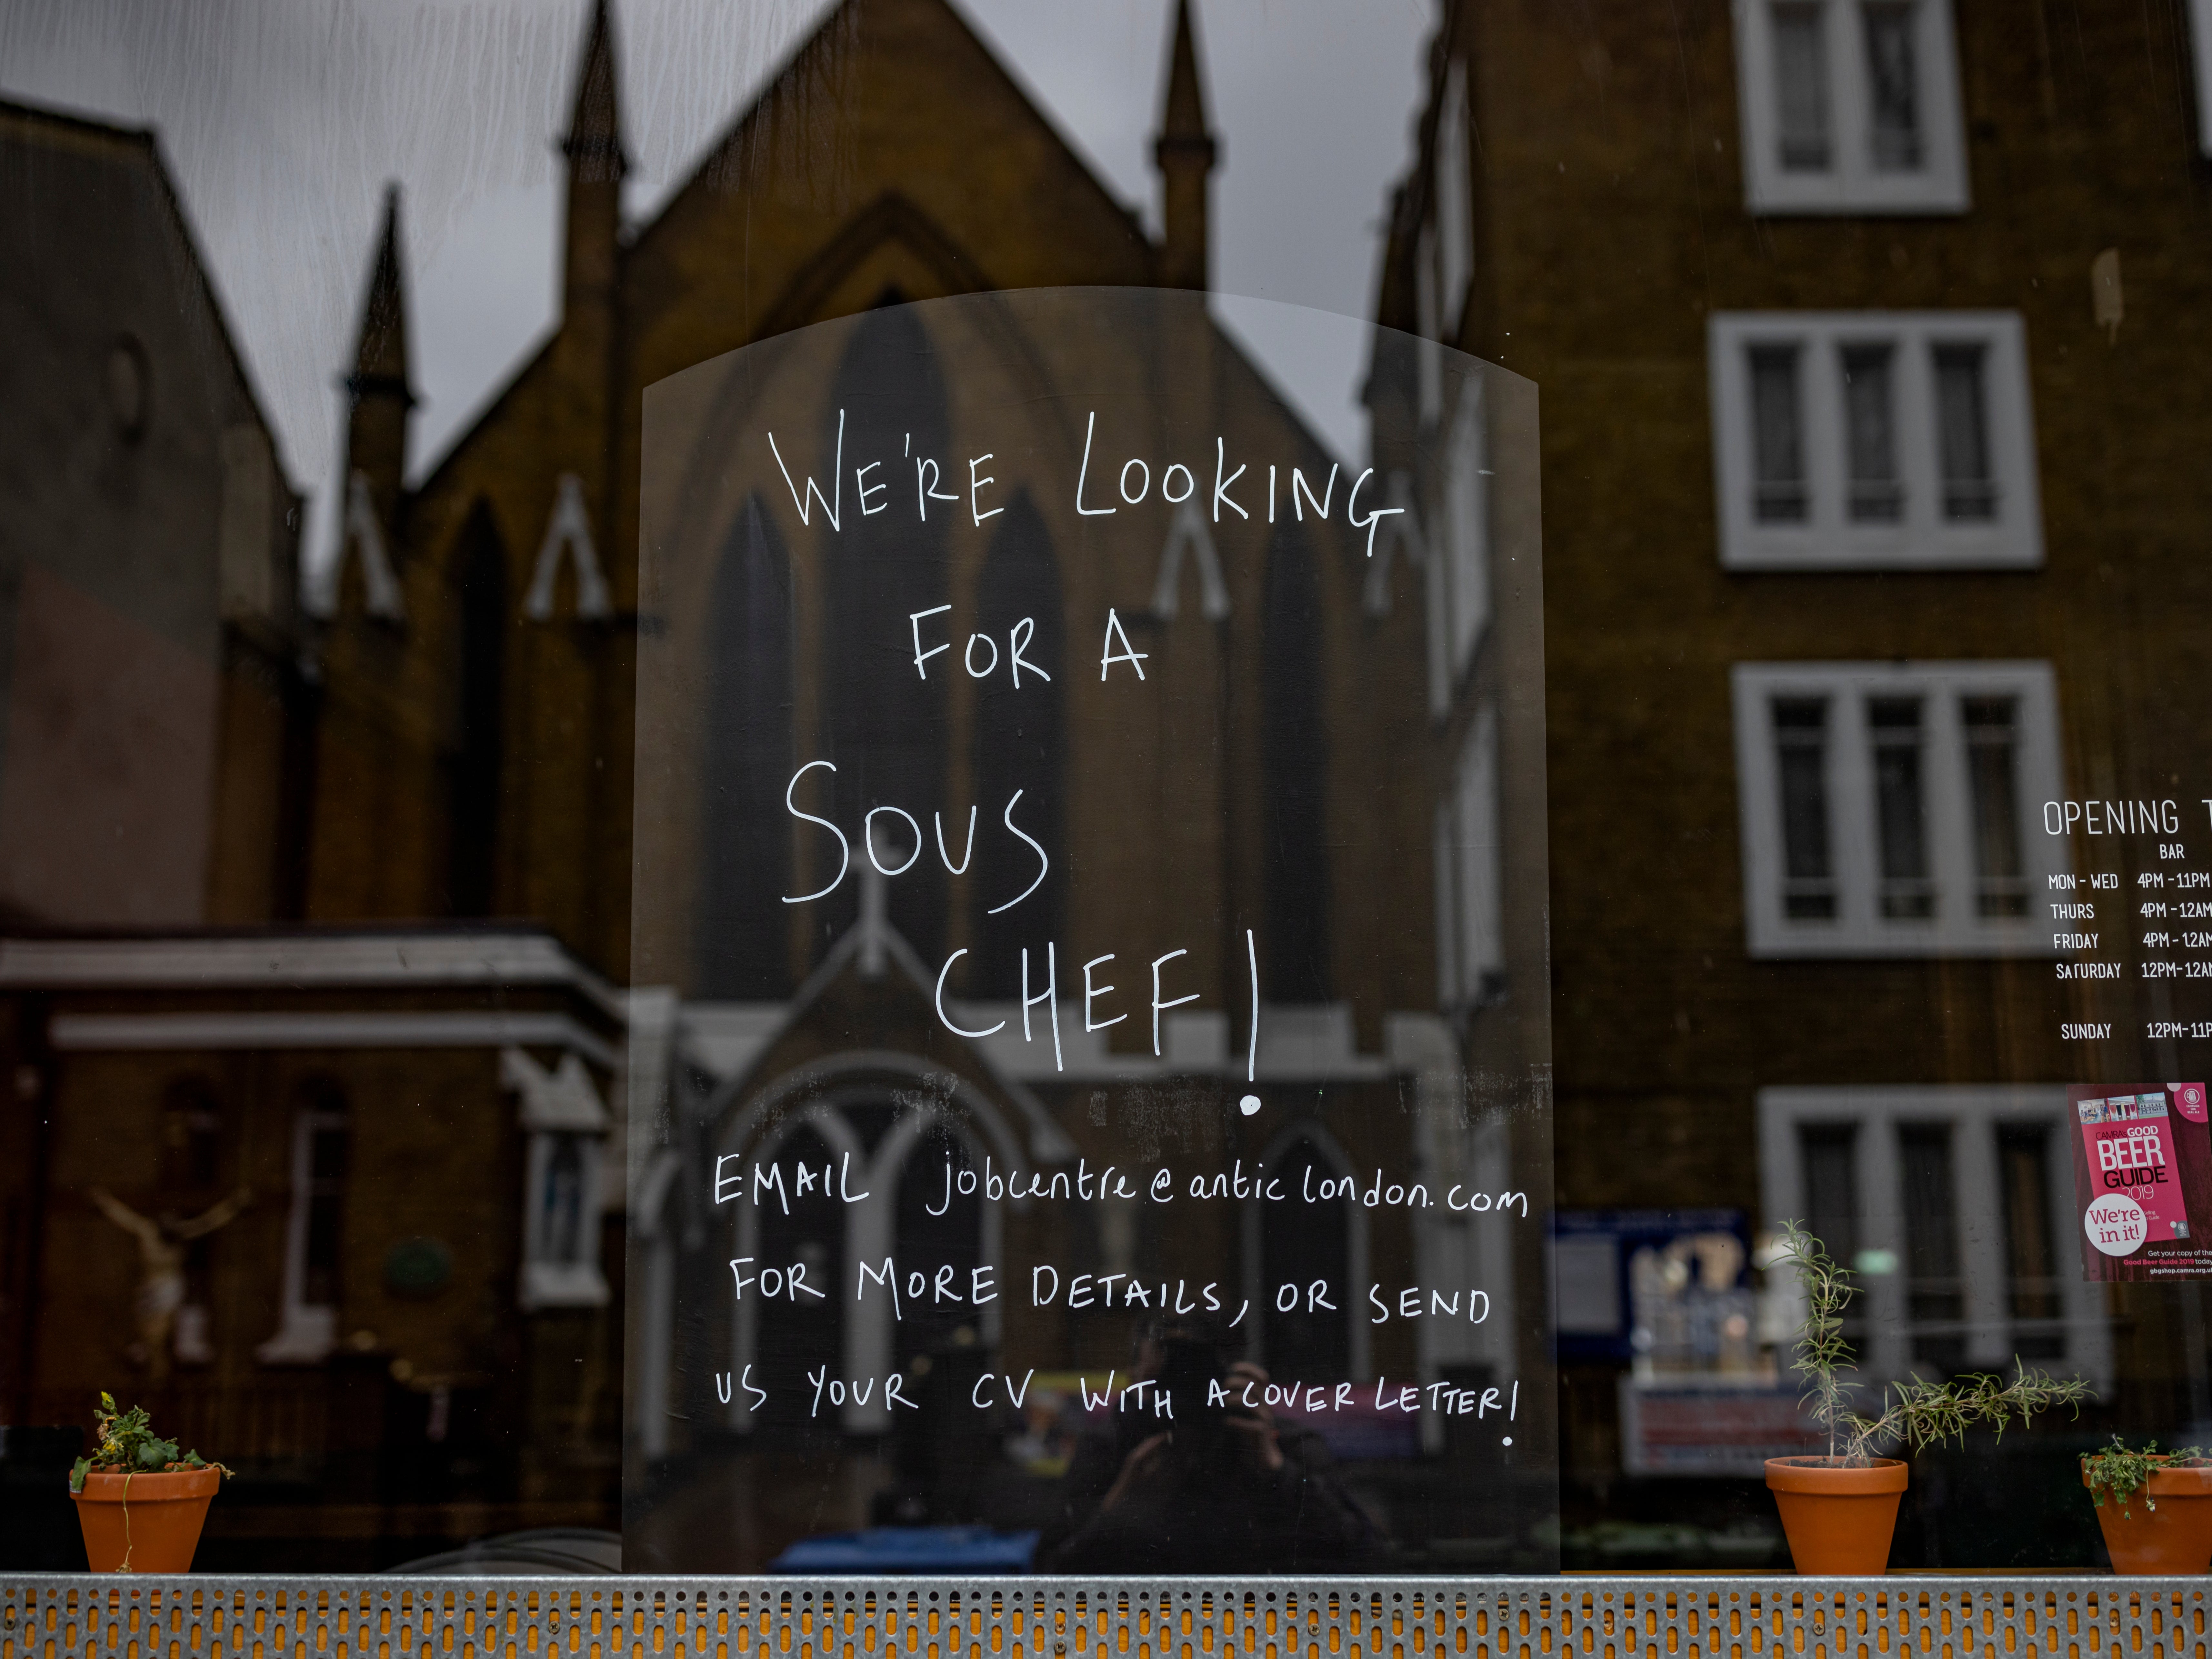 WE'RE LOOKING
FOR A
SOUS
CHEF!
EMAIL jobcentre@anticlondon.com
FOR MORE DETAILS, OR SEND
US YOUR CV WITH A COVER LETTER!
OPENING
BAR
MON - WED 4PM - 11PM
THURS 4PM - 12AM
FRIDAY 4PM - 12AM
SATURDAY 12PM-12A
SUNDAY 12PM-11P
CAMRA'S GOOD
BEER
GUIDE
2019
We're
in it!
Get your copy of the
Good Beer Guide 2019 today
gbgshop.camra.org.u